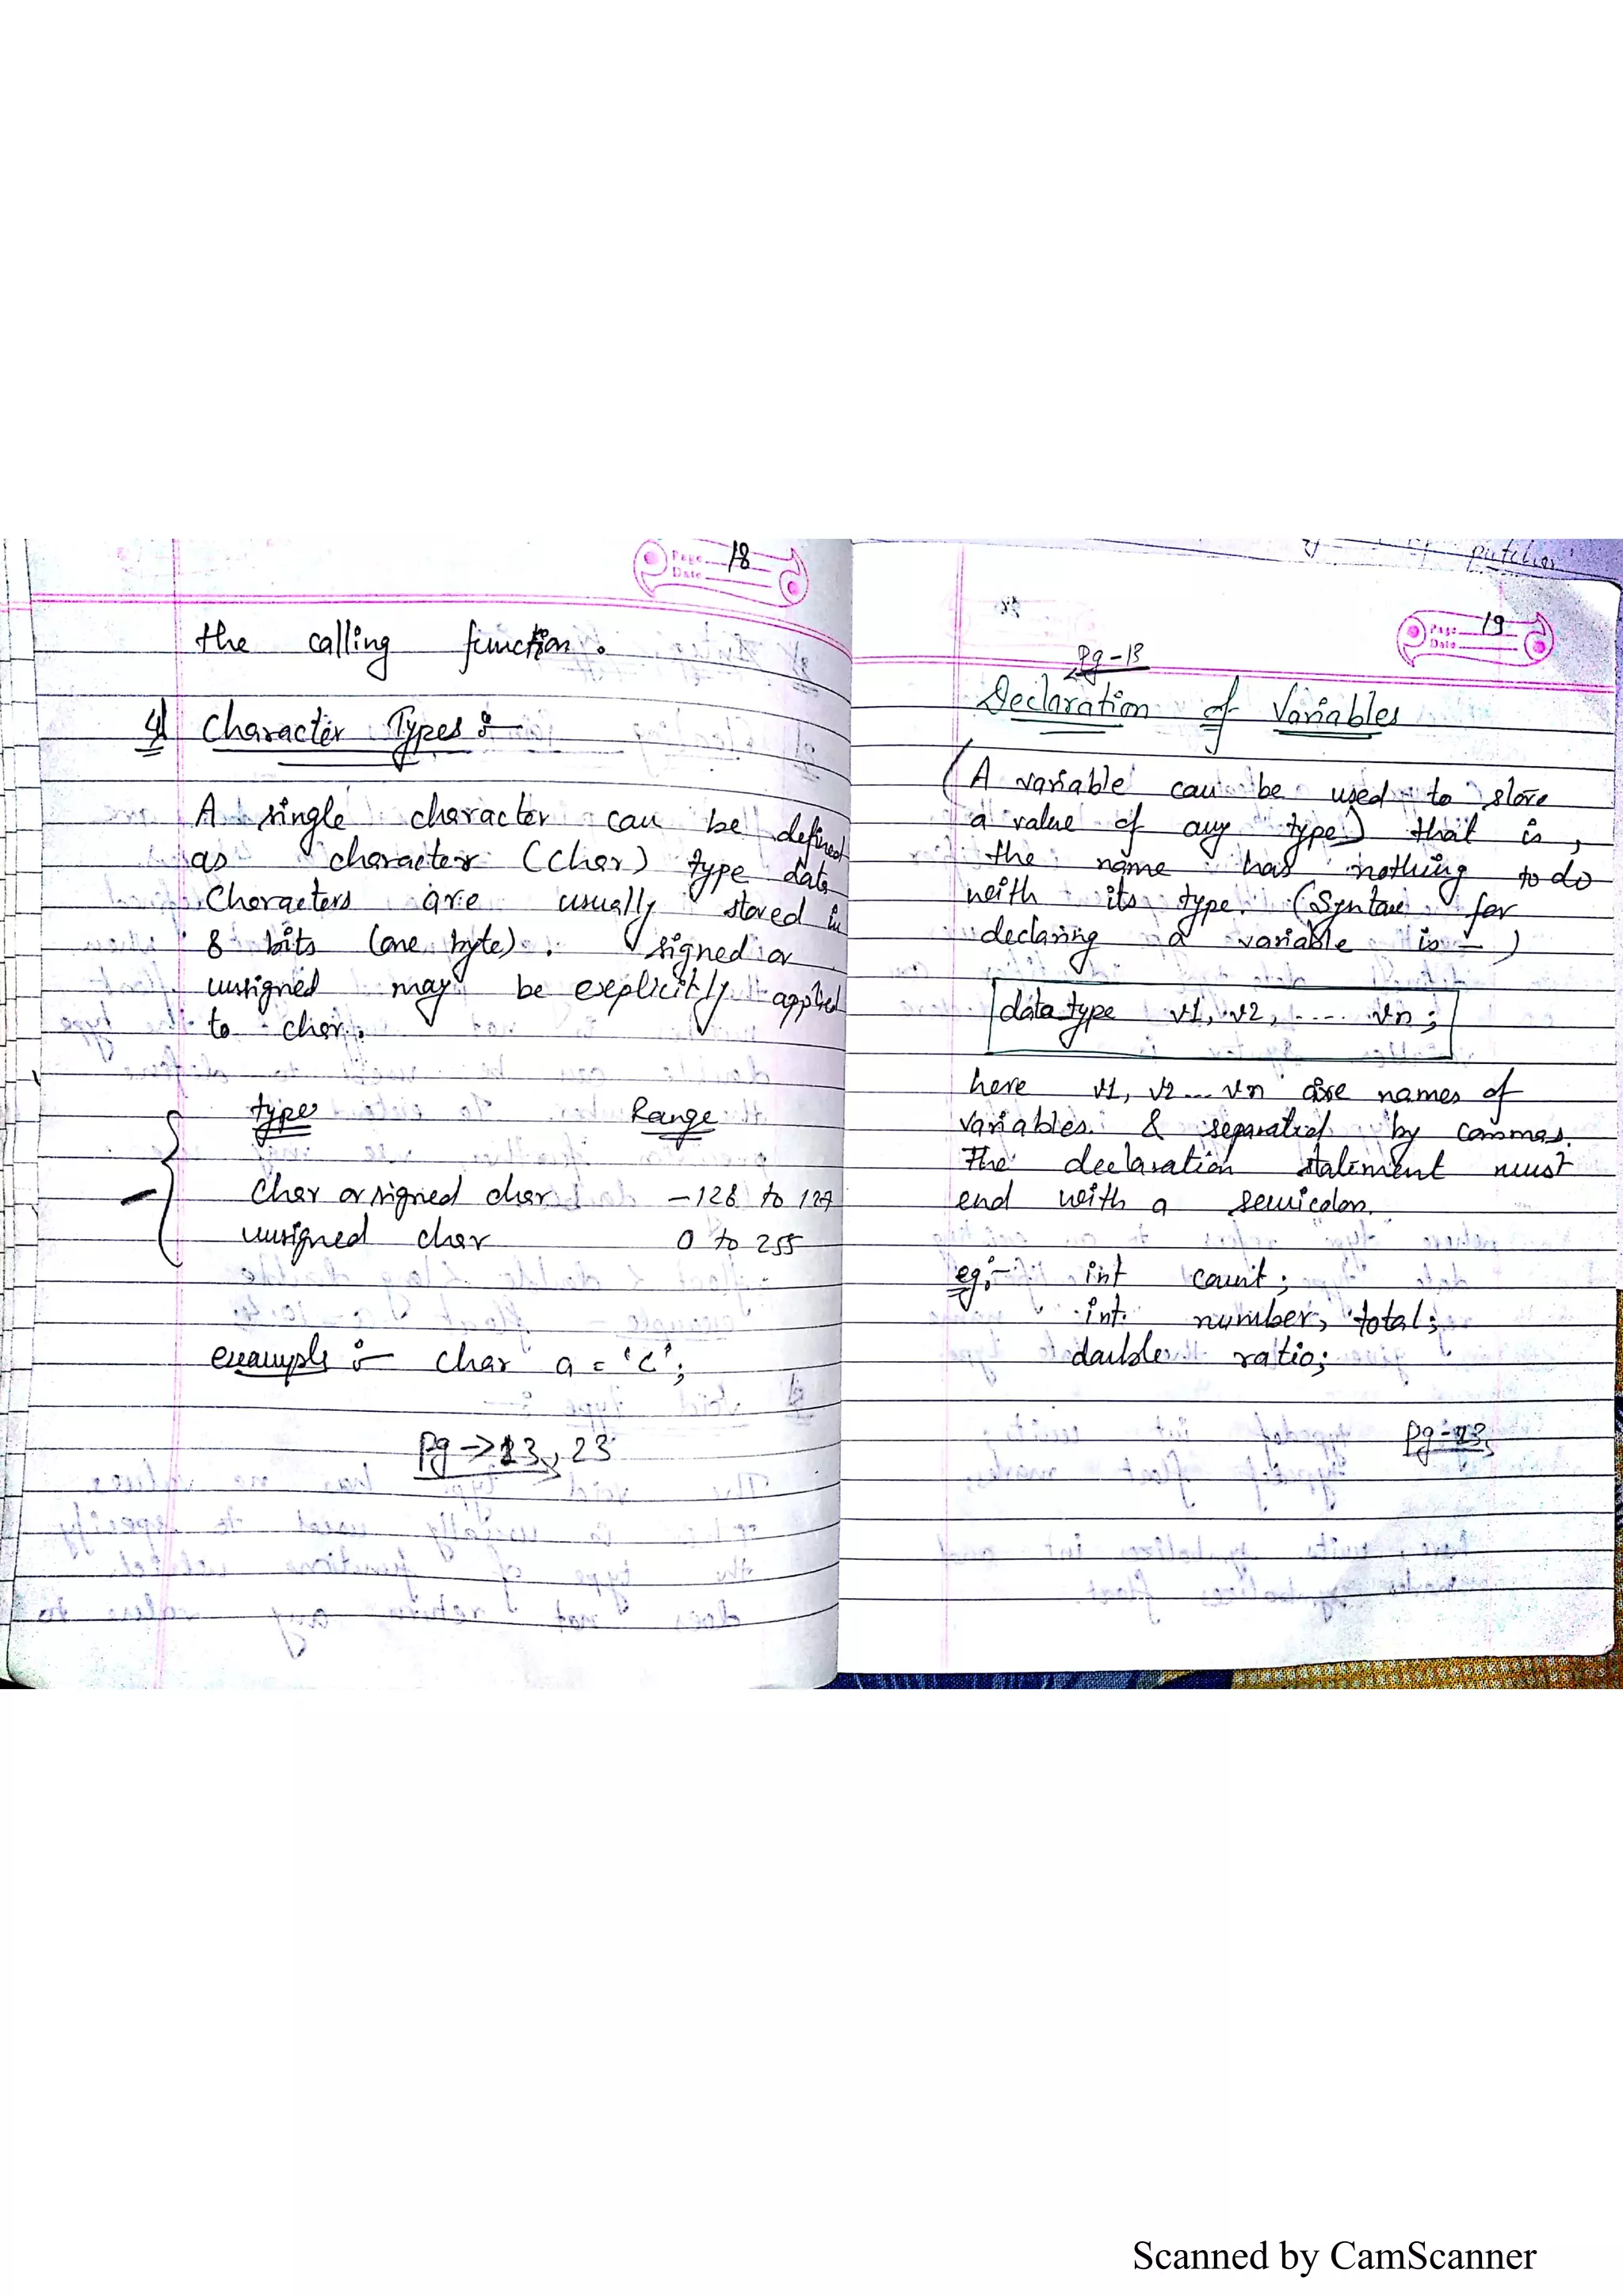 Page 18
Date
the calling function.
4) Character Types :-
A single character can be defined
as character (char) type data
Characters are usually stored in
8 bits (one byte). signed or
unsigned may be explicitly applied
to char.
type Range
Char or signed char -128 to 127
unsigned char 0 to 255
example :- char a = 'c';
Pg -> 13, 23
Page 19
Date
Pg-13
Declaration of Variables
(A variable can be used to store
a value of any type) that is,
the name has nothing to do
with its type. (Syntax for
declaring a variable is - )
data type v1, v2, .... vn ;
here v1, v2 ... vn are names of
variables. & separated by commas.
The declaration statement must
end with a semicolon.
eg:- int count;
int number, total;
double ratio;
Pg-23
Scanned by CamScanner